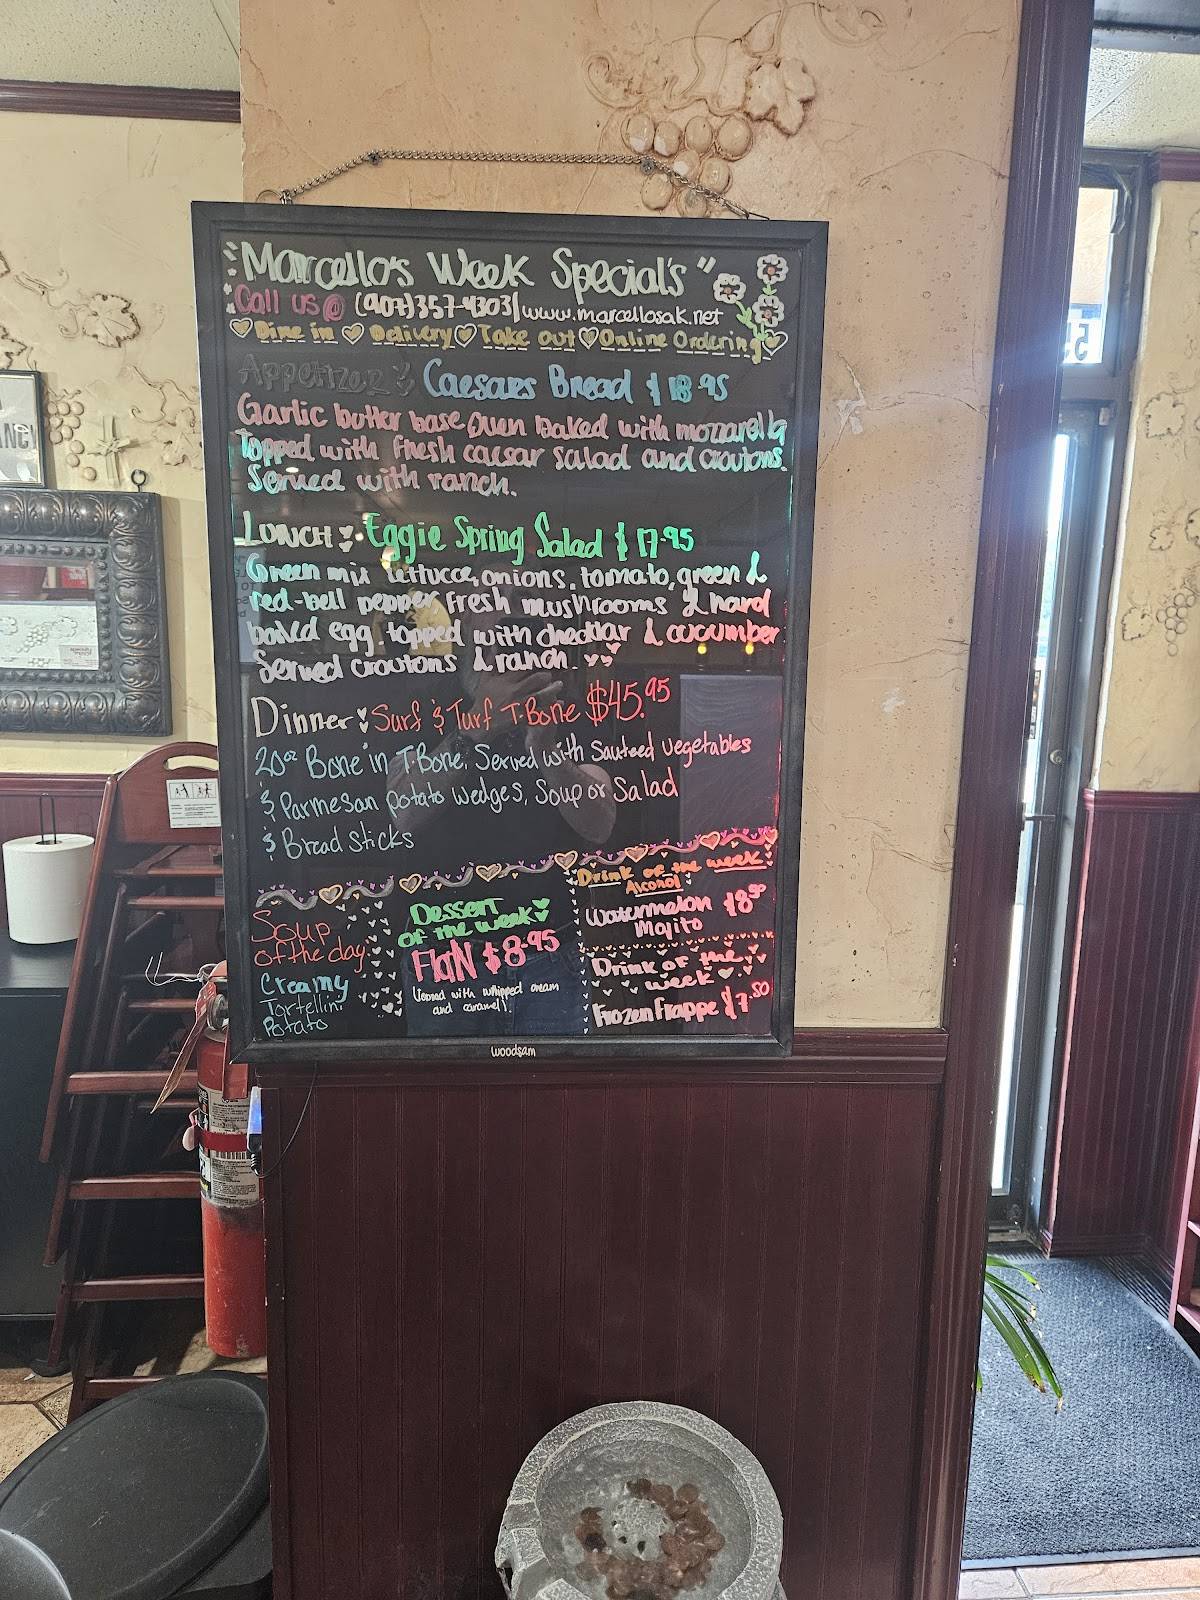 Marcello's Week Special's"
Call us @ (907)357-4303 | www.marcellosak.net
Dine in Delivery Take out Online Ordering
Appetizer Caesars Bread $18.95
Garlic butter base Oven baked with mozzarella
Topped with Fresh caesar salad and croutons.
Served with ranch.
Lunch: Eggie Spring Salad $17.95
Green mix lettucce, onions, tomato, green &
red-bell pepper, Fresh mushrooms & hard
boiled egg. topped with cheddar & cucumber
Served croutons & ranch.
Dinner: Surf & Turf T-Bone $45.95
20oz Bone in T-Bone, Served with Sauteed vegetables
& Parmesan potato wedges, Soup or Salad
& Bread sticks
Soup
of the day
Creamy
Tortellini
Potato
Dessert
of the week
Flan $8.95
whipped cream
and caramel!
Drink of the week
Alcohol
Watermelon $8.50
Mojito
Drink of the
week
Frozen Frappe $7.50
woodsam